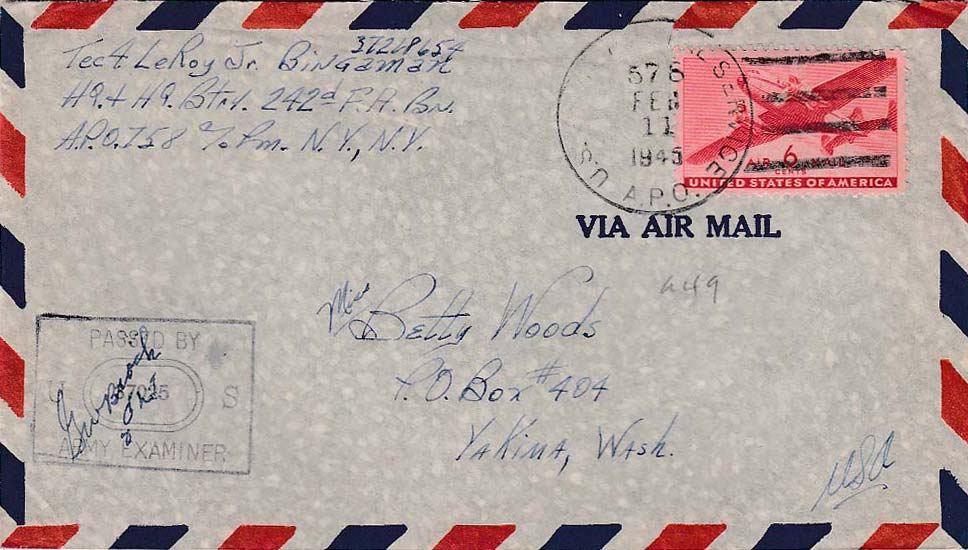 37218654
Tec4. LeRoy Jr. Bingaman
HQ. & HQ. Btry. 242d F.A. Bn.
A.P.O. 758 c/o Pm. N.Y., N.Y.
576
FEB
11
1945
U.S. A.P.O. SERVICE
AIR 6 MAIL
CENTS
UNITED STATES OF AMERICA
VIA AIR MAIL
a49
Miss Betty Woods
P.O. Box #404
Yakima, Wash.
PASSED BY
U S
ARMY EXAMINER
USA